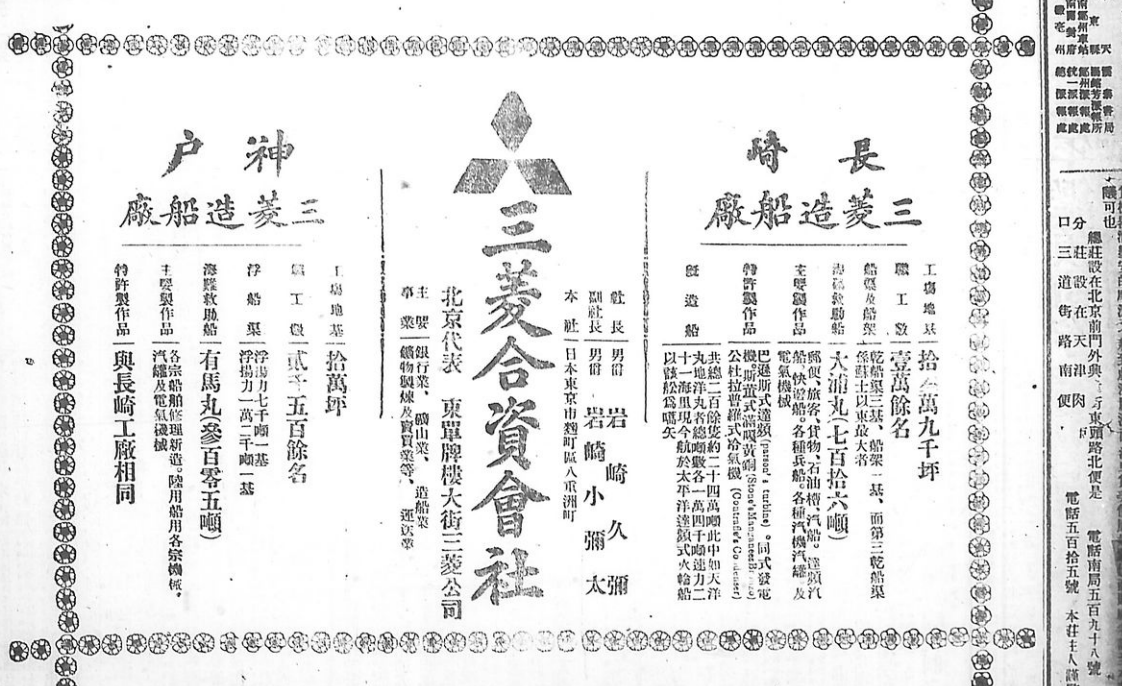 長崎
三菱造船廠
工場地基 拾八萬九千坪
職工數 壹萬餘名
船渠及船架 乾船渠三基、船架一基、而第三乾船渠
係蘇士以東最大者
海難救助船 大浦丸(七百拾六噸)
主要製作品 郵便、旅客、貨物、石油槽、汽船。達頮汽
船、快遊船。各種兵船。各種汽機汽罐、及
電氣機械
特許製作品 巴遜斯式達頮(parson's turbine)。同式發電
機。斯董式滿暖黃銅
公杜拉普羅式冷氣機
既造船 共總二百餘隻約二十四萬噸此中如天洋
丸地洋丸者總噸數各一萬四千噸速力二
十一海里現今航於太平洋達頮式火輪船
以該船爲嚆矢
三菱合資會社
社長 男爵 岩崎久彌
副社長 男爵 岩崎小彌太
本社 日本東京市麴町區八重洲町
北京代表 東單牌樓大街三菱公司
主要事業 銀行業、礦山業、造船業
鑛物製煉及賣買業等、運送業
神戶
三菱造船廠
工場地基 拾萬坪
職工數 貳千五百餘名
浮船渠 浮揚力七千噸一基
浮揚力一萬二千噸一基
海難救助船 有馬丸(參百零五噸)
主要製作品 各宗船舶修理新造。陸用船用各宗機械。
汽罐及電氣機械
特許製作品 與長崎工廠相同
議可也
總莊設在北京前門外
東頭路北便是 電話南局五百九十八號
分莊設在天津
口三道街路南便 電話五百拾五號 本莊主人謹